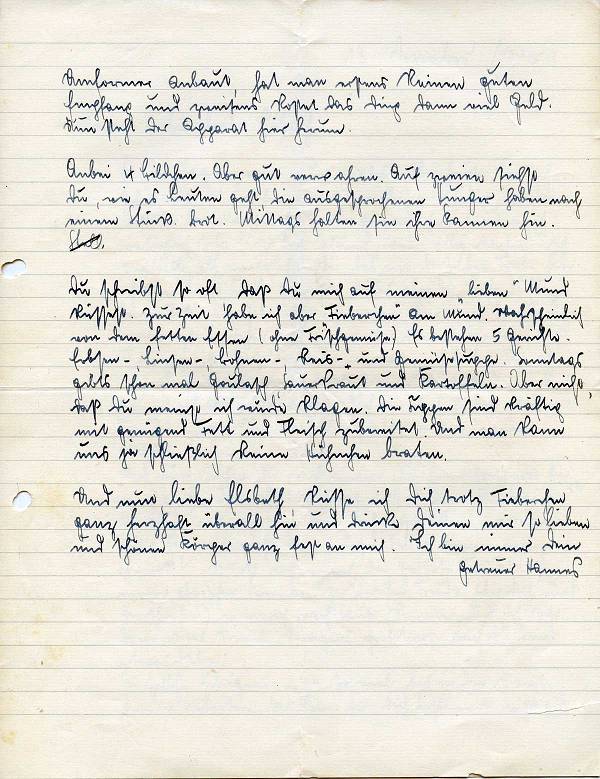 Umformer anbaut, hat man erstens keinen guten
Empfang und zweitens kostet das Ding dann viel Geld.
Nun steht der Apparat hier herum.
Anbei 4 Bildchen. Aber gut verwahren. Auf zweien siehst
Du, wie es Leuten geht, die ausgesprochenen Hunger haben nach
einem Stück Brot. Mittags halten sie ihre Kannen hin.
Du schreibst so oft daß Du mich auf meinen lieben "Mund
küssest. Zur Zeit habe ich aber Fieberchen am Mund. Wahrscheinlich
von dem fetten Essen (ohne Frischgemüse) Es bestehen 5 Gerichte.
Erbsen-, Linsen-, Bohnen-, Reis-, und Gemüsesuppe. Sonntags
gibts schon mal Goulasch Sauerkraut und Kartoffeln. Aber nicht,
daß Du meinst ich würde klagen. Die Suppen sind kräftig
mit genügend Fett und Fleisch zubereitet. Und man kann
uns ja schließlich keine Hühnchen braten.
Und nun liebe Elsbeth, küsse ich Dich trotz Fieberchen
ganz herzhaft überall hin und drücke Deinen mir so lieben
und schönen Körper ganz fest an mich. Ich bin immer Dein
getreuer Hannes